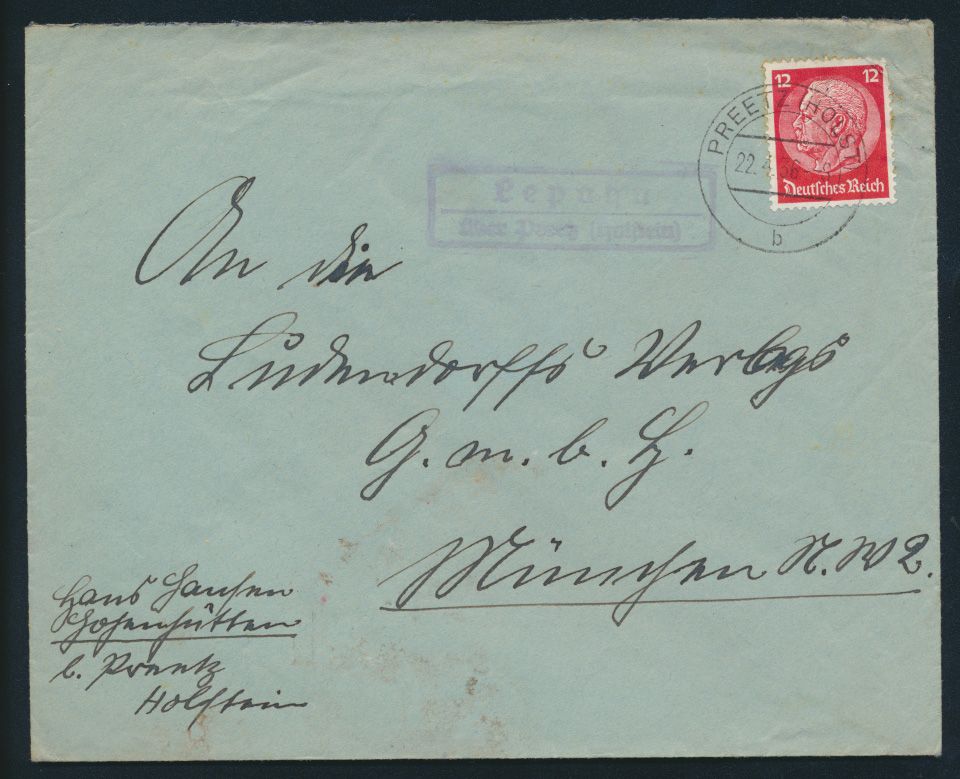 12 12
Deutsches Reich
PREETZ (HOLST
22.4.36
b
Lepahn
über Preetz (Holstein)
An die
Ludendorffs Verlag
G.m.b.H.
München N.W2.
Hans Hansen
Hohenhütten
b. Preetz
Holstein